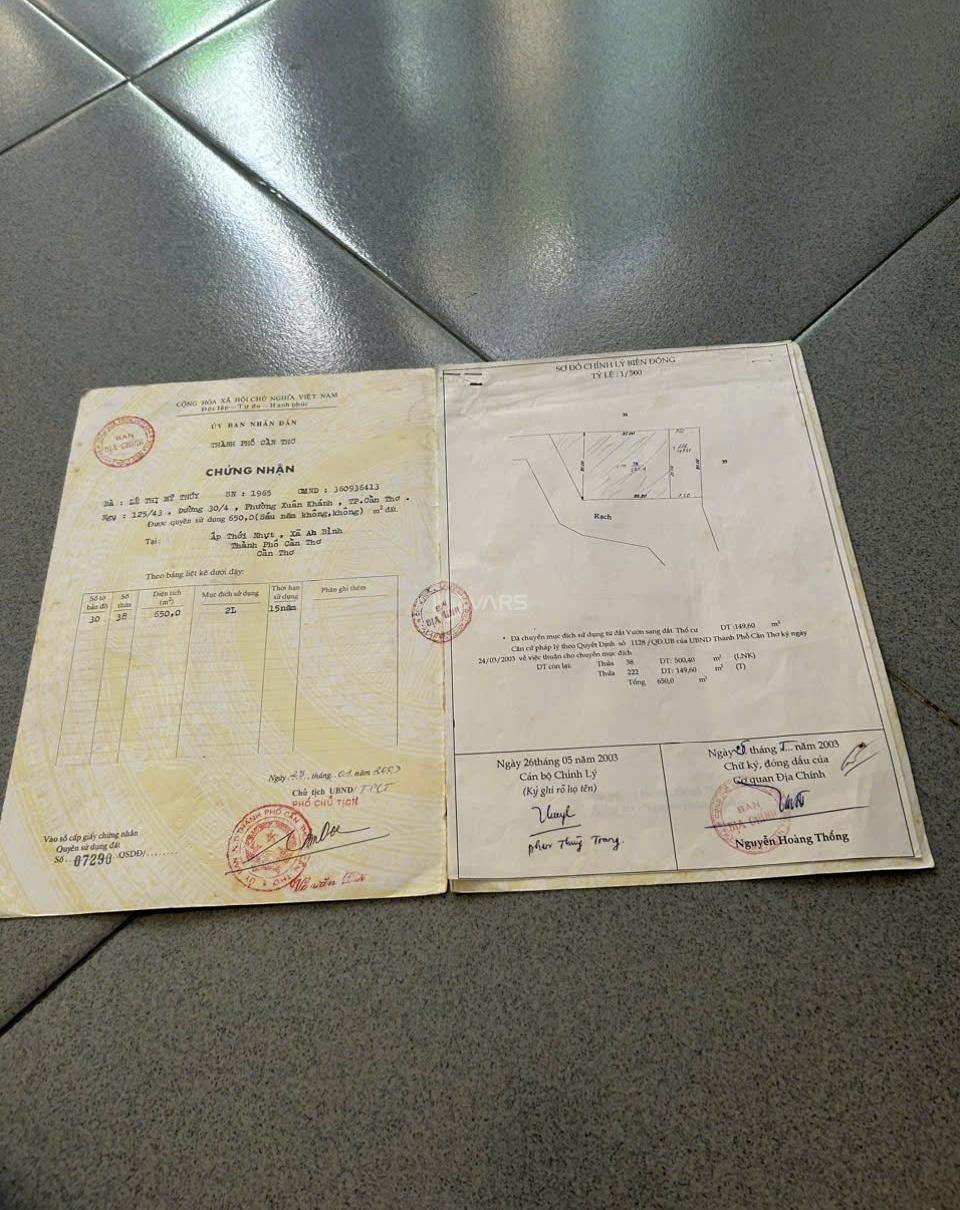 CỘNG HÒA XÃ HỘI CHỦ NGHĨA VIỆT NAM
Độc lập - Tự do - Hạnh phúc
ỦY BAN NHÂN DÂN
THÀNH PHỐ CẦN THƠ
BAN
ĐỊA CHÍNH
CHỨNG NHẬN
Bà : LÊ THỊ MỸ THÚY SN : 1965 CMND : 360936413
Ngụ : 125/43 , Đường 30/4 , Phường Xuân Khánh , TP.Cần Thơ .
Được quyền sử dụng 650,0(Sáu năm không,không) m² đất
Tại: Ấp Thới Nhựt , Xã An Bình
Thành Phố Cần Thơ
Cần Thơ
Theo bảng liệt kê dưới đây:
Số tờ bản đồ Số thửa Diện tích (m²) Mục đích sử dụng Thời hạn sử dụng Phần ghi thêm
30 38 650,0 2L 15năm
Chủ tịch UBND/
PHÓ CHỦ TỊCH
Vào sổ cấp giấy chứng nhận
Quyền sử dụng đất
Số 07290 QSDĐ/
SƠ ĐỒ CHỈNH LÝ BIẾN ĐỘNG
TỶ LỆ : 1/500
Rạch
VARS
• Đã chuyển mục đích sử dụng từ đất Vườn sang đất Thổ cư DT :149,60 m²
Căn cứ pháp lý theo Quyết Định số 1128 /QĐ.UB của UBND Thành Phố Cần Thơ ký ngày
24/03/2003 về việc thuận cho chuyển mục đích
DT còn lại: Thửa 38 DT: 500,40 m² (LNK)
Thửa 222 DT: 149,60 m² (T)
Tổng 650,0 m²
Ngày 26tháng 05 năm 2003
Cán bộ Chỉnh Lý
(Ký ghi rõ họ tên)
Ngày tháng năm 2003
Chữ ký, đóng dấu của
Cơ quan Địa Chính
BAN
ĐỊA CHÍNH
Nguyễn Hoàng Thống